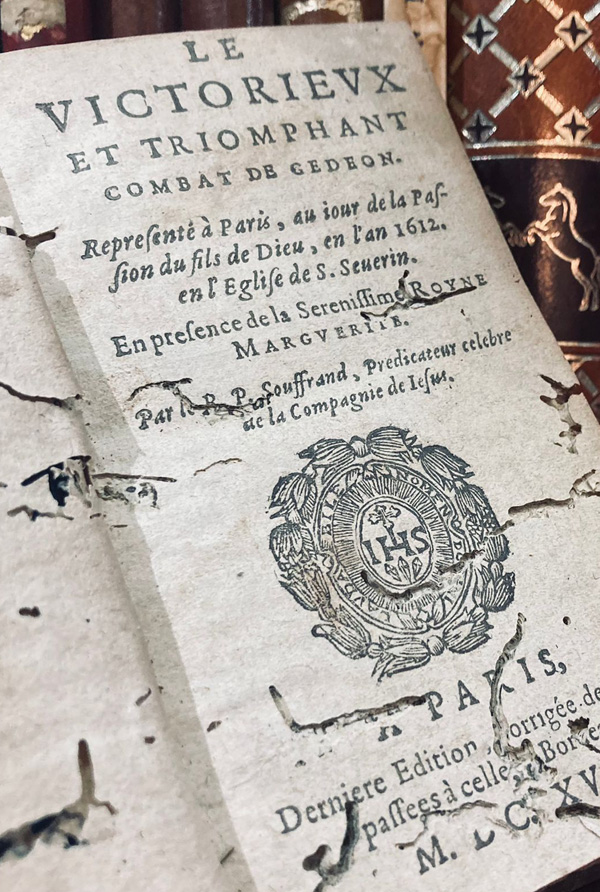 LE
VICTORIEVX
ET TRIOMPHANT
COMBAT DE GEDEON.
Repreſenté à Paris, au iour de la Paſ-
ſion du fils de Dieu, en l'an 1612.
en l'Egliſe de S. Seuerin.
En preſence de la Sereniſſime ROYNE
MARGVERITE.
Par le R. P. Souffrand, Predicateur celebre
de la Compagnie de Ieſus.
IHS
A PARIS,
Derniere Edition, corrigée de
paſſées à celle
M. D C. XV